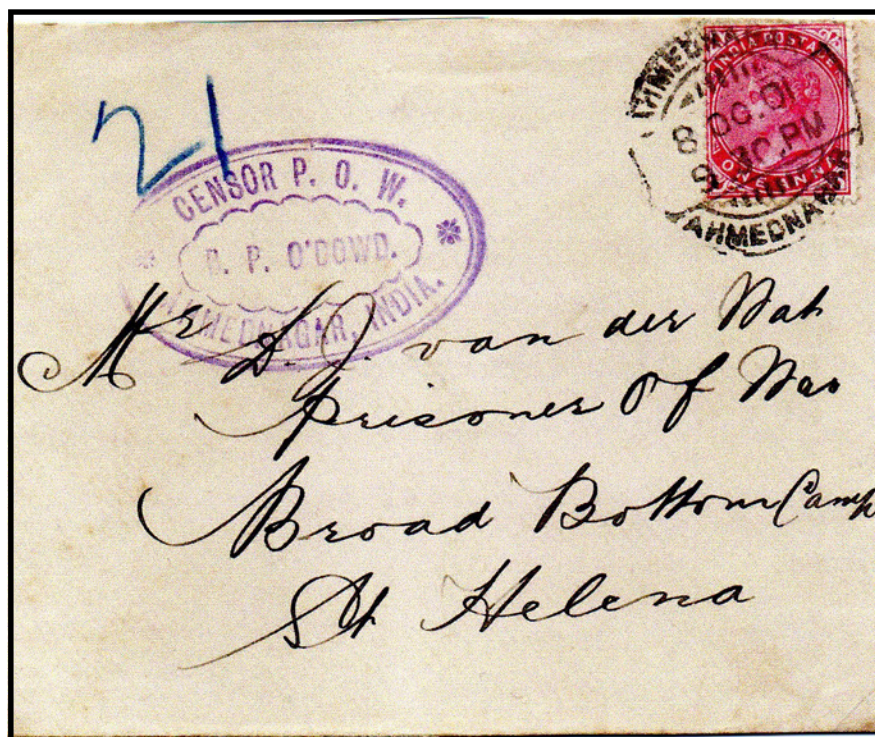 21
CENSOR P. O. W.
P. O'DOWD.
AHMEDNAGAR, INDIA.
INDIA POSTAGE
ONE ANNA
AHMEDNAGAR
8 OC.01
9 40.PM
AHMEDNAGAR
Mr D. J. van der Wah
Prisoner Of War
Broad Bottom Camp
St Helena